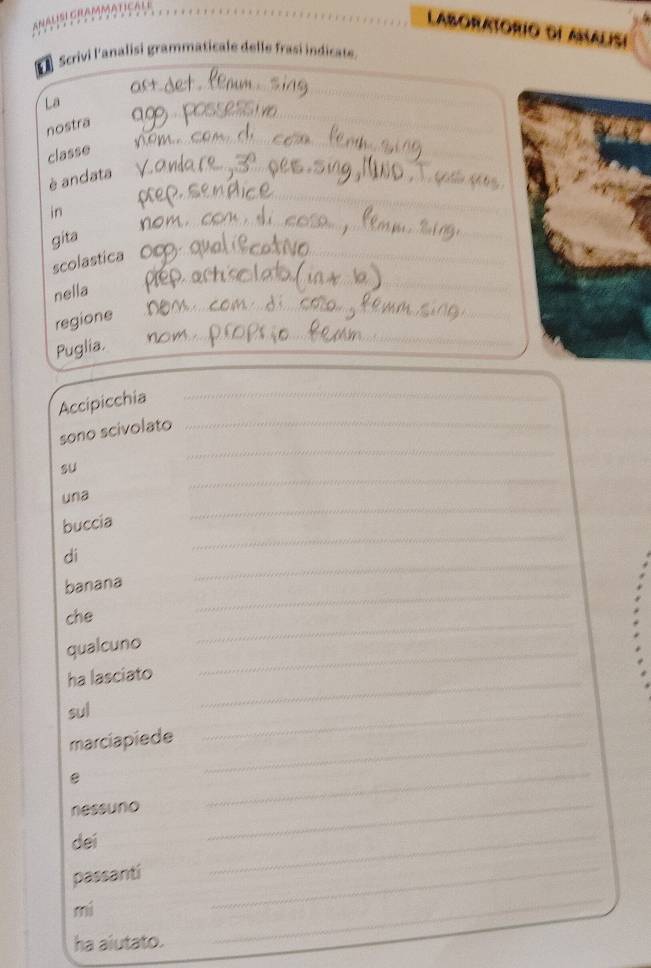 ANALISI GRAMMATICALE
LABORATORIO DI ANALISI
1 Scrivi l'analisi grammaticale delle frasi indicate.
La art. det. femm. sing
nostra agg. possessivo
classe nom. com. di cosa femm. sing
è andata v. andare, 3° per. sing, IND. T. pas. pros.
in prep. semplice
gita nom. com. di cosa, femm. sing.
scolastica agg. qualificativo
nella prep. articolata (in + la)
regione nom. com. di cosa, femm. sing.
Puglia. nom. proprio femm
Accipicchia
sono scivolato
su
una
buccia
di
banana
che
qualcuno
ha lasciato
sul
marciapiede
e
nessuno
dei
passanti
mi
ha aiutato.